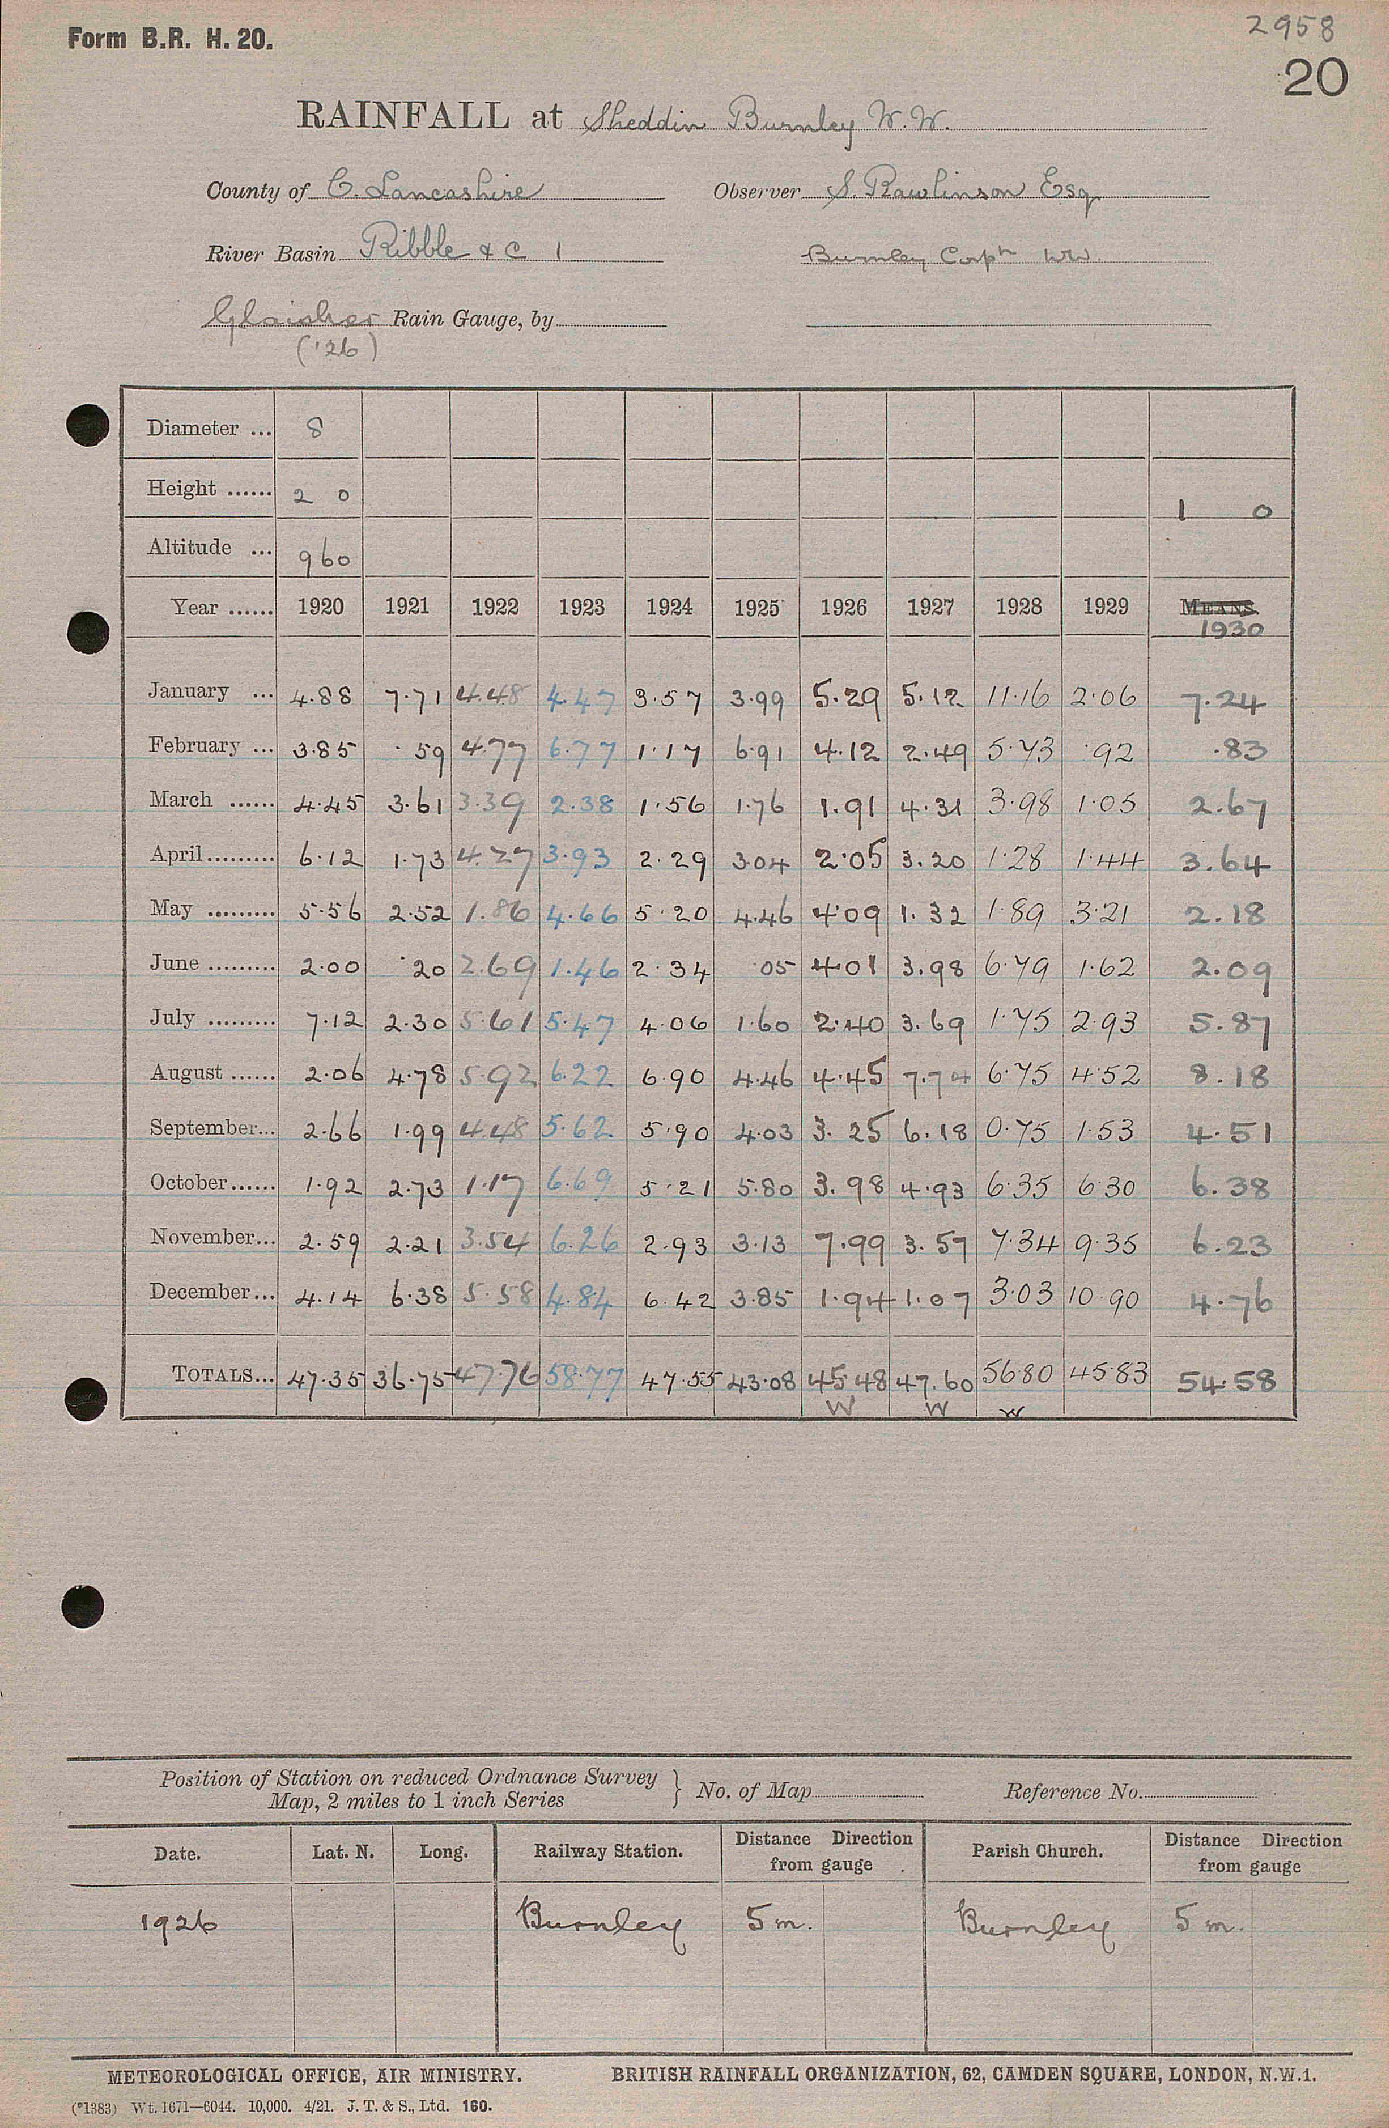 Form B.R. H. 20.
2958
20
RAINFALL at Sheddin Burnley W.W.
County of C. Lancashire Observer S. Rawlinson Esq
River Basin Ribble & C 1 Burnley Corpn WW
Glaisher Rain Gauge, by
('26)
Diameter ... 8
Height ...... 2 0 1 0
Altitude ... 960
Year ...... 1920 1921 1922 1923 1924 1925 1926 1927 1928 1929 MEANS.
1930
January ... 4.88 7.71 4.48 4.47 3.57 3.99 5.29 5.12 11.16 2.06 7.24
February ... 3.85 .59 4.77 6.77 1.17 6.91 4.12 2.49 5.73 .92 .83
March ...... 4.45 3.61 3.39 2.38 1.56 1.76 1.91 4.31 3.98 1.05 2.67
April ......... 6.12 1.73 4.27 3.93 2.29 3.04 2.05 3.20 1.28 1.44 3.64
May ......... 5.56 2.52 1.86 4.66 5.20 4.46 4.09 1.32 1.89 3.21 2.18
June ......... 2.00 .20 2.69 1.46 2.34 .05 4.01 3.98 6.79 1.62 2.09
July ......... 7.12 2.30 5.61 5.47 4.06 1.60 2.40 3.69 1.75 2.93 5.87
August ...... 2.06 4.78 5.92 6.22 6.90 4.46 4.45 7.74 6.75 4.52 8.18
September... 2.66 1.99 4.48 5.62 5.90 4.03 3.25 6.18 0.75 1.53 4.51
October ...... 1.92 2.73 1.17 6.69 5.21 5.80 3.98 4.93 6.35 6.30 6.38
November... 2.59 2.21 3.54 6.26 2.93 3.13 7.99 3.57 7.34 9.35 6.23
December... 4.14 6.38 5.58 4.84 6.42 3.85 1.94 1.07 3.03 10.90 4.76
TOTALS... 47.35 36.75 47.76 58.77 47.55 43.08 45.48 47.60 56.80 45.83 54.58
W W W
Position of Station on reduced Ordnance Survey
Map, 2 miles to 1 inch Series } No. of Map Reference No.
Date. Lat. N. Long. Railway Station. Distance Direction from gauge Parish Church. Distance Direction from gauge
1926 Burnley 5 m. Burnley 5 m.
METEOROLOGICAL OFFICE, AIR MINISTRY. BRITISH RAINFALL ORGANIZATION, 62, CAMDEN SQUARE, LONDON, N.W.1.
(*1383) Wt. 1671—6044. 10,000. 4/21. J. T. & S., Ltd. 160.